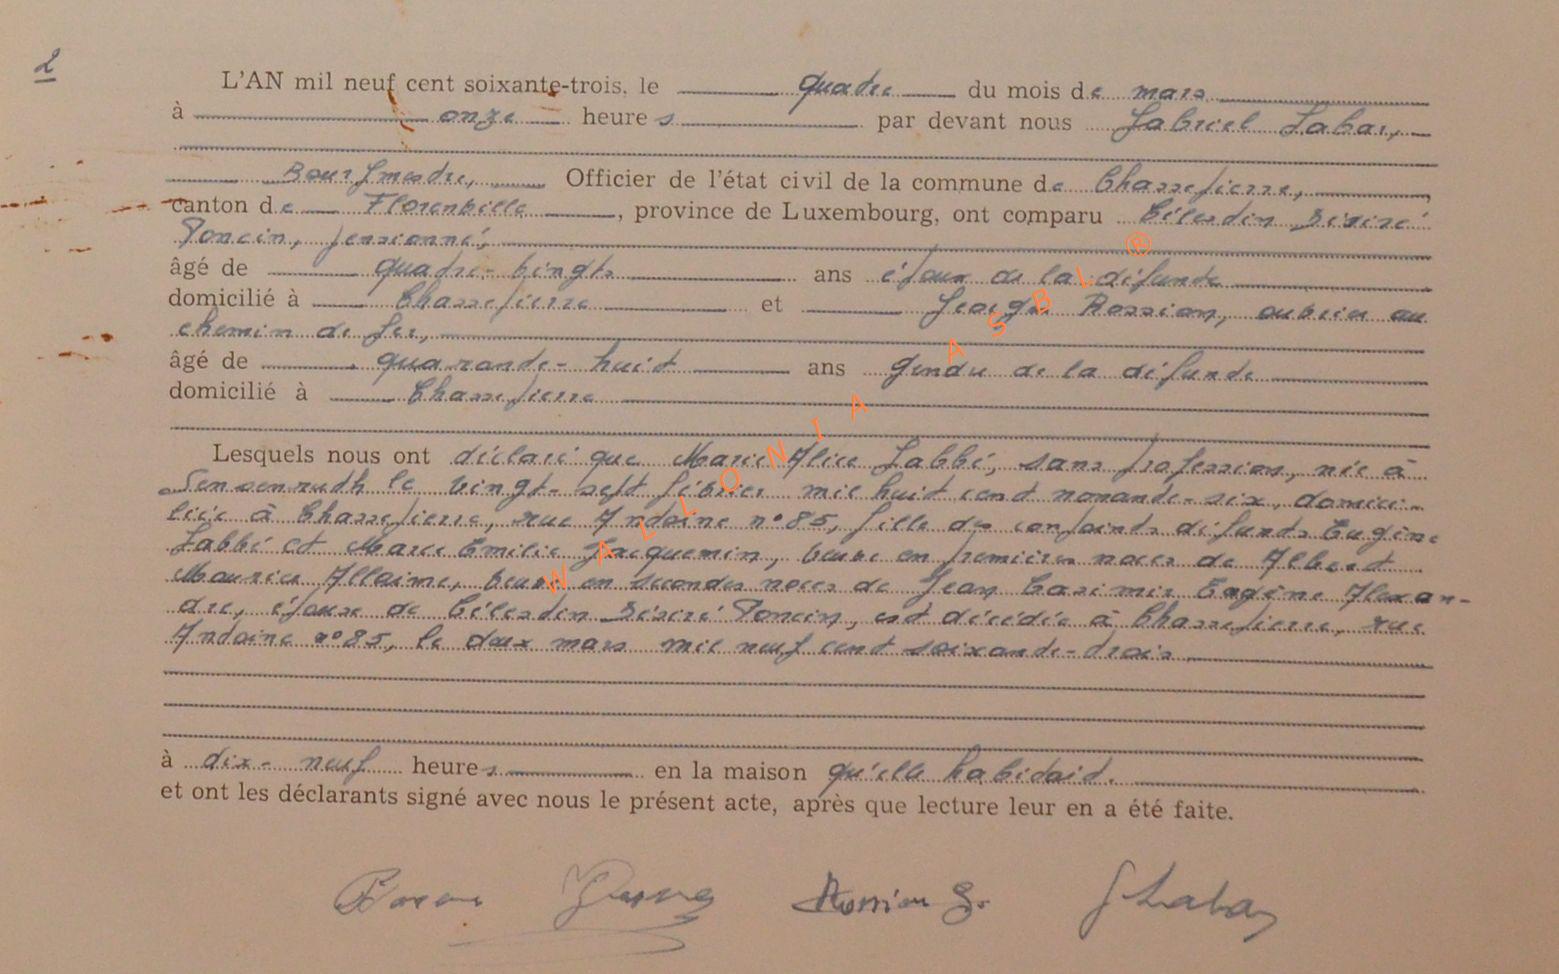 2
L'AN mil neuf cent soixante-trois, le quatre du mois de mars
à onze heures par devant nous Gabriel Labar,
Bourgmestre, Officier de l'état civil de la commune de Chassepierre,
canton de Florenville, province de Luxembourg, ont comparu Célestin Désiré
Poncin, pensionné,
âgé de quatre-vingts ans époux de la défunte
domicilié à Chassepierre et Georges Rossion, ouvrier au
chemin de fer,
âgé de quarante-huit ans gendre de la défunte
domicilié à Chassepierre
Lesquels nous ont déclaré que Marie Alice Labbé, sans profession, née à
Sensenruth le vingt-sept février mil huit cent nonante-six, domici-
liée à Chassepierre, rue Antoine n° 85, fille des conjoints défunts Eugène
Labbé et Marie Emilie Jacquemin, veuve en premières noces de Albert
Maurice Allaime, veuve en secondes noces de Jean Casimir Eugène Alexan-
dre, épouse de Célestin Désiré Poncin, est décédée à Chassepierre, rue
Antoine n° 85, le deux mars mil neuf cent soixante-trois
à dix-neuf heures en la maison qu'elle habitait.
et ont les déclarants signé avec nous le présent acte, après que lecture leur en a été faite.
Rossion G. GLabar
WALLONIA ASBL ®